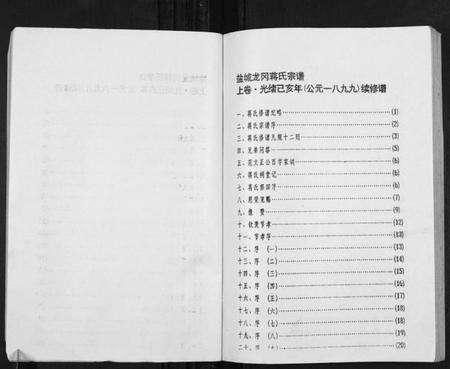 盐城龙冈蒋氏宗谱
上卷·光绪己亥年(公元一八九九)续修谱
一、蒋氏修谱记略 (1)
二、蒋氏宗谱序 (2)
三、蒋氏修谱凡规十二则 (3)
四、兄弟问答 (5)
五、范文正公百字家训 (6)
六、蒋氏祠堂记 (6)
七、蒋氏祭田序 (6)
八、 (7)
九、像 赞 (9)
十、钦旌节孝 (12)
十一、节孝序 (13)
十二、序 (一) (13)
十三、序 (二) (14)
十四、序 (三) (15)
十五、序 (四) (16)
十六、序 (五) (17)
十七、序 (六) (18)
十八、序 (七) (18)
十九、序 (八) (19)
二十、序 (20)